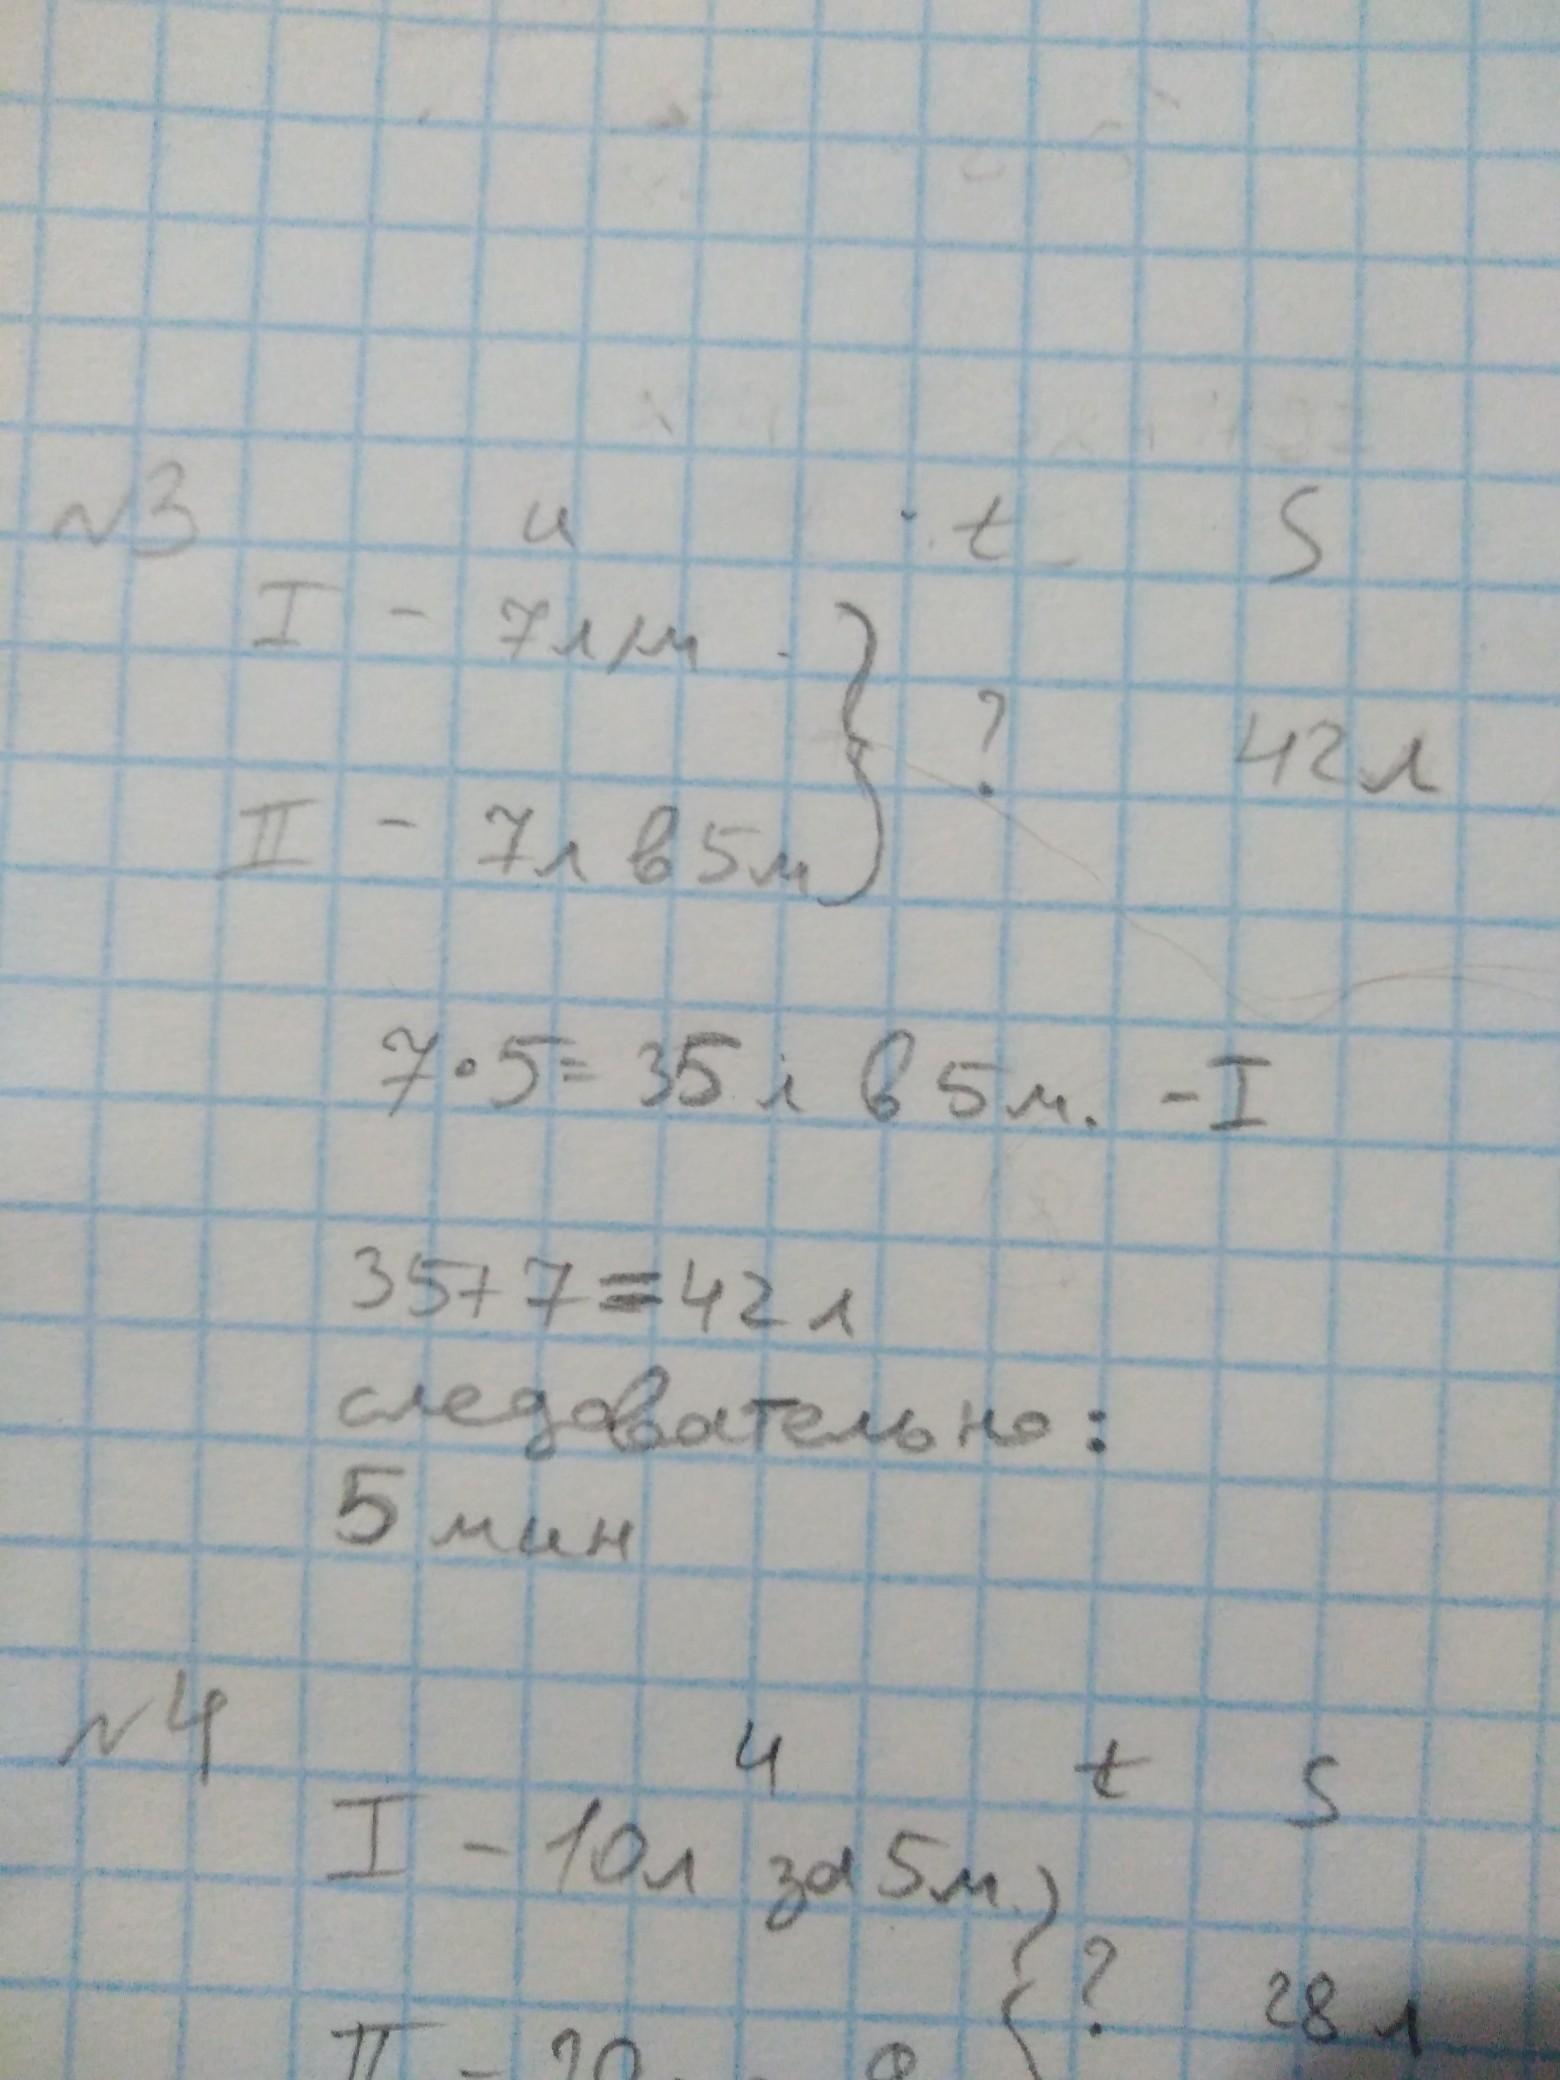 №3 u t S
I - 7л/м
? 42 л
II - 7л в 5м
7·5=35 л в 5 м. - I
35+7=42 л
следовательно:
5 мин
№4 u t S
I - 10л за 5м
? 28 л
II -